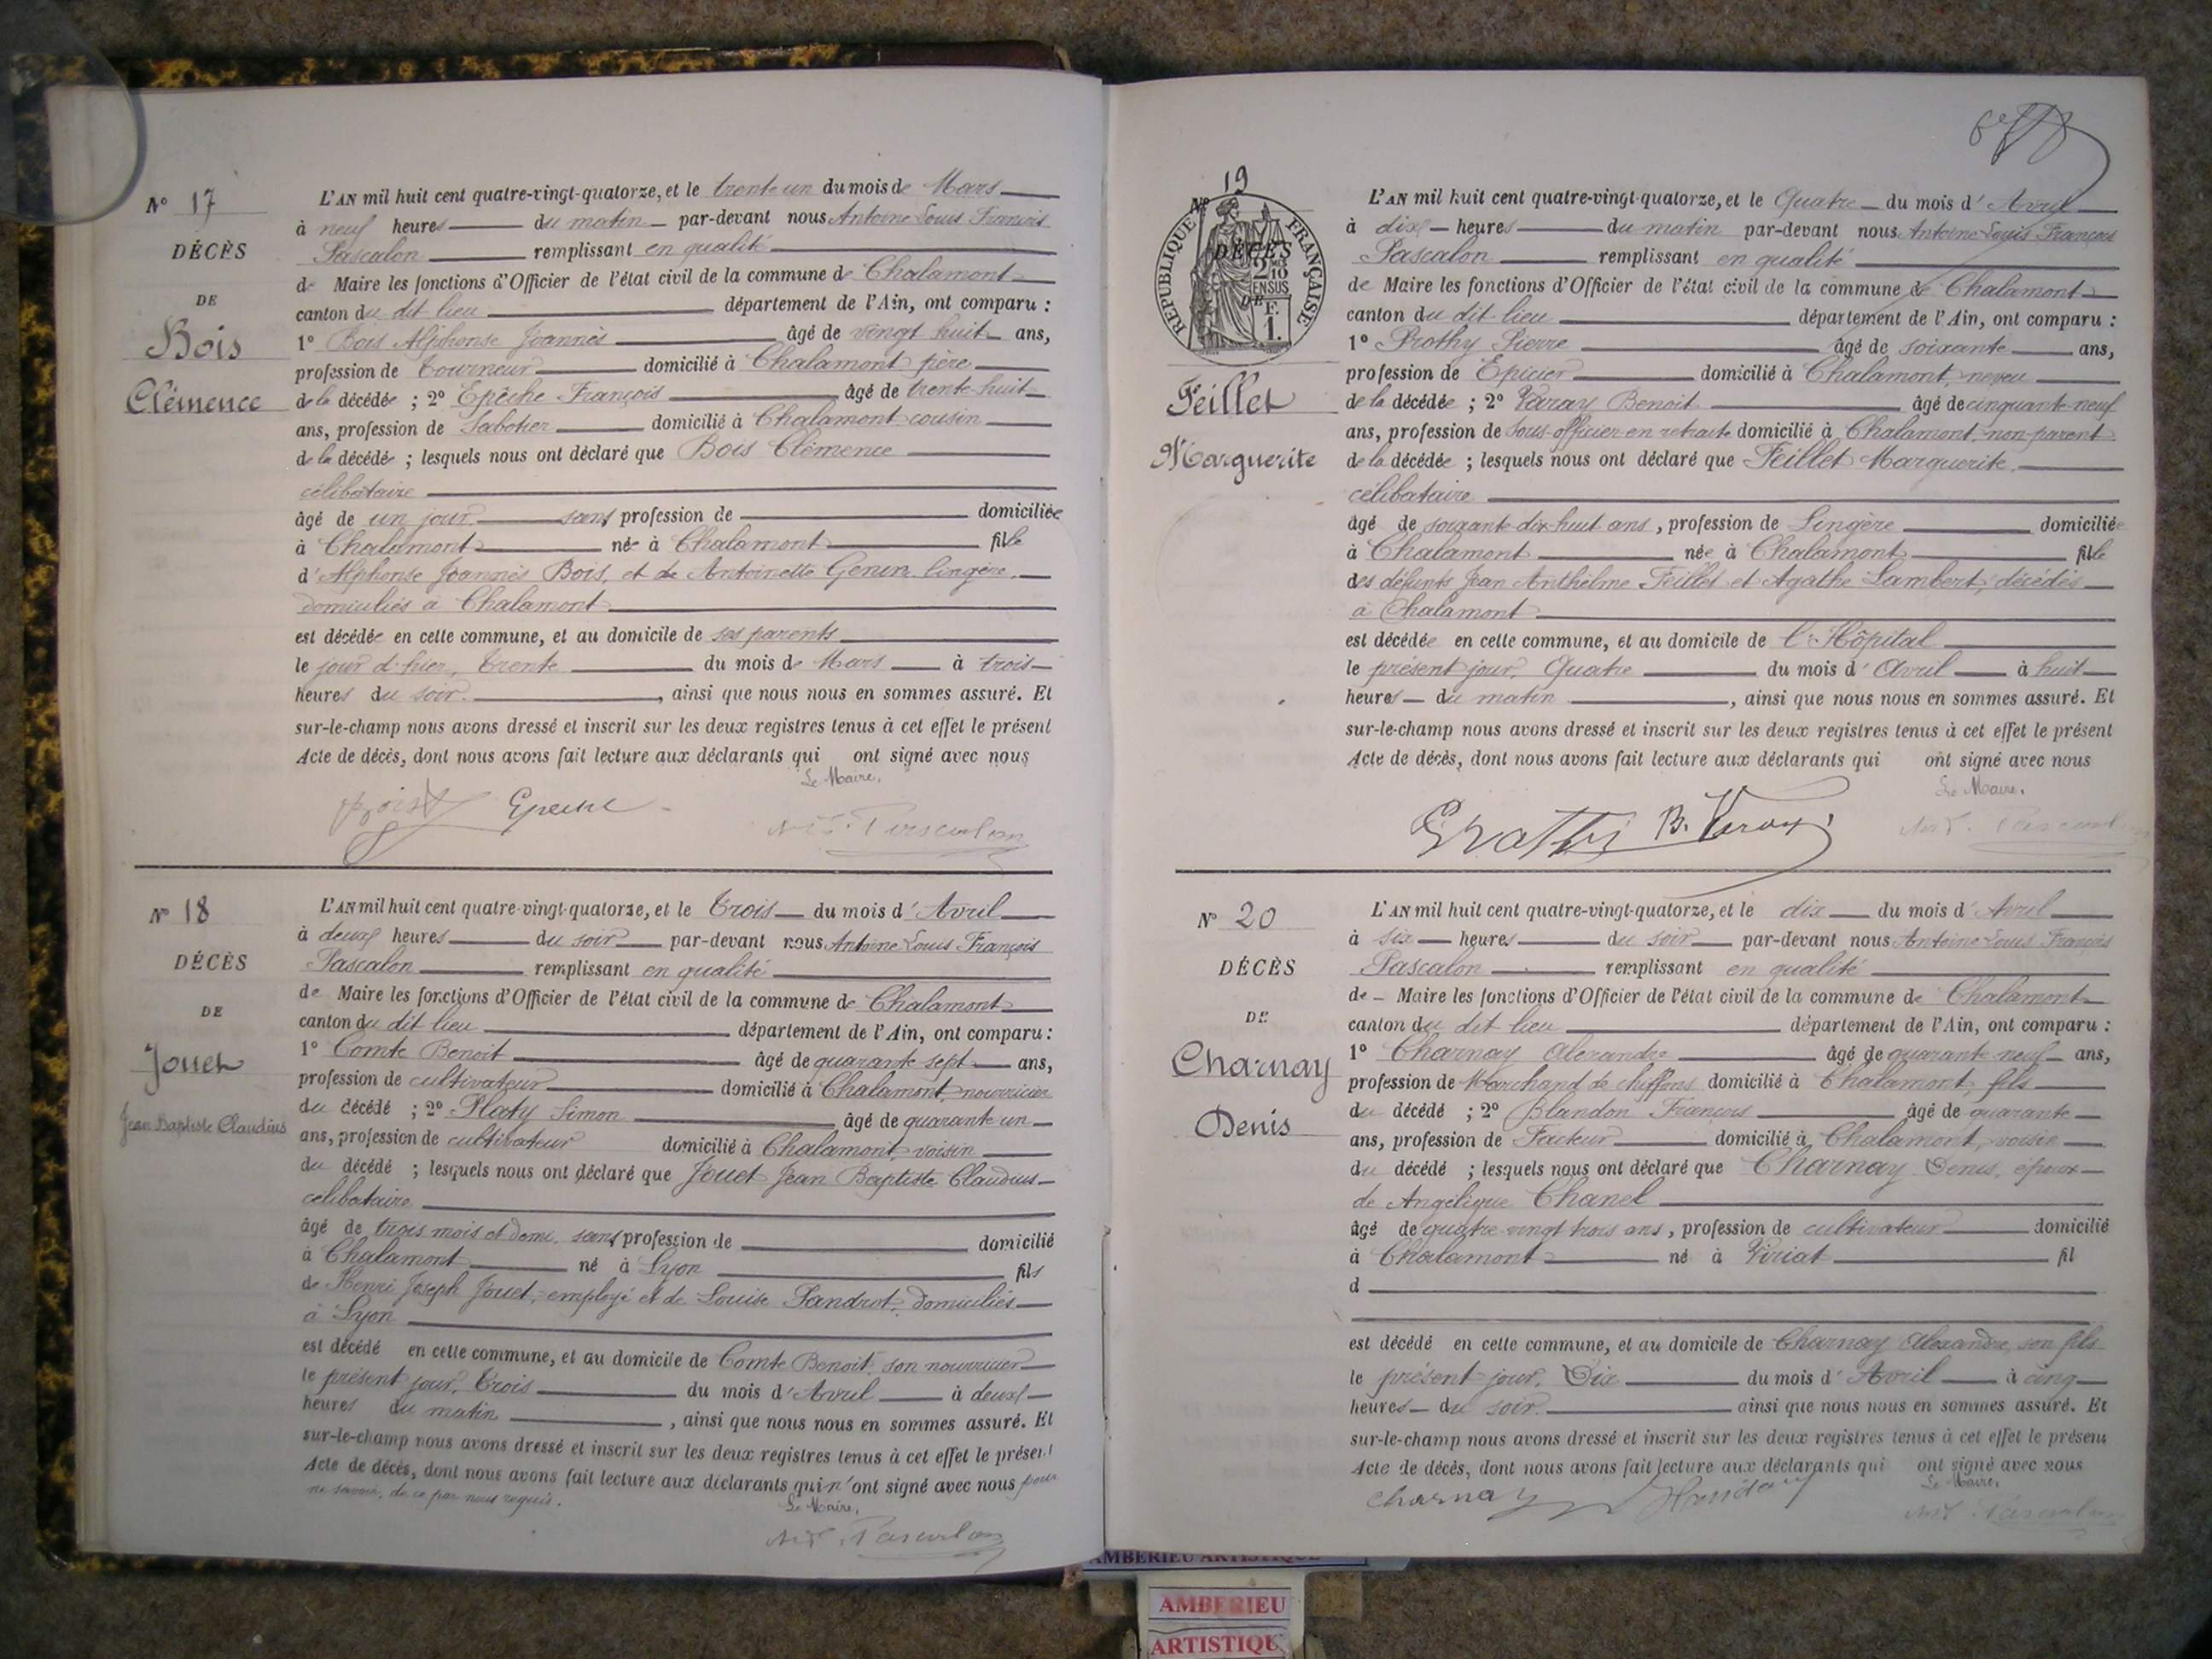 N° 17
DÉCÈS
DE
Bois
Clémence
L'AN mil huit cent quatre-vingt-quatorze, et le trente un du mois de Mars
à neuf heures du matin par-devant nous Antoine Louis François
Pascalon remplissant en qualité
de Maire les fonctions d'Officier de l'état civil de la commune de Chalamont
canton du dit lieu département de l'Ain, ont comparu :
1° Bois Alphonse Joannès âgé de vingt huit ans,
profession de tourneur domicilié à Chalamont père
de la décédée ; 2° Epêche François âgé de trente-huit
ans, profession de Sabotier domicilié à Chalamont cousin
de la décédée ; lesquels nous ont déclaré que Bois Clémence
célibataire
âgé de un jour sans profession de domiciliée
à Chalamont née à Chalamont fille
d'Alphonse Joannès Bois, et de Antoinette Genin lingère,
domiciliés à Chalamont
est décédée en cette commune, et au domicile de ses parents
le jour d'hier, trente du mois de Mars à trois
heures du soir. , ainsi que nous nous en sommes assuré. Et
sur-le-champ nous avons dressé et inscrit sur les deux registres tenus à cet effet le présent
Acte de décès, dont nous avons fait lecture aux déclarants qui ont signé avec nous
Le Maire,
Bois Epeche
Pascalon
N° 18
DÉCÈS
DE
Jouet
Jean Baptiste Claudius
L'AN mil huit cent quatre-vingt-quatorze, et le trois du mois d'Avril
à deux heures du soir par-devant nous Antoine Louis François
Pascalon remplissant en qualité
de Maire les fonctions d'Officier de l'état civil de la commune de Chalamont
canton du dit lieu département de l'Ain, ont comparu :
1° Comte Benoit âgé de quarante sept ans,
profession de cultivateur domicilié à Chalamont, nourricier
du décédé ; 2° Platy Simon âgé de quarante un
ans, profession de cultivateur domicilié à Chalamont, voisin
du décédé ; lesquels nous ont déclaré que Jouet Jean Baptiste Claudius
célibataire
âgé de trois mois et demi, sans profession de domicilié
à Chalamont né à Lyon fils
de Henri Joseph Jouet, employé et de Louise Pandrot, domiciliés
à Lyon
est décédé en cette commune, et au domicile de Comte Benoit, son nourricier
le présent jour, trois du mois d'Avril à deux
heures du matin , ainsi que nous nous en sommes assuré. Et
sur-le-champ nous avons dressé et inscrit sur les deux registres tenus à cet effet le présent
Acte de décès, dont nous avons fait lecture aux déclarants qui n'ont signé avec nous pour
ne savoir, de ce par nous requis.
Le Maire,
Pascalon
N° 19
RÉPUBLIQUE FRANÇAISE
DÉCÈS
2/10 EN SUS
DE
1 F.
Feillet
Marguerite
L'AN mil huit cent quatre-vingt-quatorze, et le Quatre du mois d'Avril
à dix heures du matin par-devant nous Antoine Louis François
Pascalon remplissant en qualité
de Maire les fonctions d'Officier de l'état civil de la commune de Chalamont
canton du dit lieu département de l'Ain, ont comparu :
1° Prothy Pierre âgé de soixante ans,
profession de Epicier domicilié à Chalamont, neveu
de la décédée ; 2° Varay Benoit âgé de cinquante-neuf
ans, profession de Sous-officier en retraite domicilié à Chalamont, non parent
de la décédée ; lesquels nous ont déclaré que Feillet Marguerite
célibataire
âgé de soixante-dix-huit ans, profession de Lingère domiciliée
à Chalamont née à Chalamont fille
des défunts Jean Anthelme Feillet et Agathe Lambert, décédés
à Chalamont
est décédée en cette commune, et au domicile de l'Hôpital
le présent jour, Quatre du mois d'Avril à huit
heures du matin , ainsi que nous nous en sommes assuré. Et
sur-le-champ nous avons dressé et inscrit sur les deux registres tenus à cet effet le présent
Acte de décès, dont nous avons fait lecture aux déclarants qui ont signé avec nous
Le Maire,
B. Varay
N° 20
DÉCÈS
DE
Charnay
Denis
L'AN mil huit cent quatre-vingt-quatorze, et le dix du mois d'Avril
à six heures du soir par-devant nous Antoine Louis François
Pascalon remplissant en qualité
de Maire les fonctions d'Officier de l'état civil de la commune de Chalamont
canton du dit lieu département de l'Ain, ont comparu :
1° Charnay Alexandre âgé de quarante-neuf ans,
profession de Marchand de chiffons domicilié à Chalamont, fils
du décédé ; 2° Blandon François âgé de quarante
ans, profession de Facteur domicilié à Chalamont, voisin
du décédé ; lesquels nous ont déclaré que Charnay Denis, époux
de Angélique Chanel
âgé de quatre-vingt trois ans, profession de cultivateur domicilié
à Chalamont né à Viriat fil
d
est décédé en cette commune, et au domicile de Charnay Alexandre, son fils
le présent jour, Dix du mois d'Avril à cinq
heures du soir. ainsi que nous nous en sommes assuré. Et
sur-le-champ nous avons dressé et inscrit sur les deux registres tenus à cet effet le présent
Acte de décès, dont nous avons fait lecture aux déclarants qui ont signé avec nous
Le Maire,
Charnay
Pascalon
AMBERIEU ARTISTIQUE
AMBERIEU
ARTISTIQU